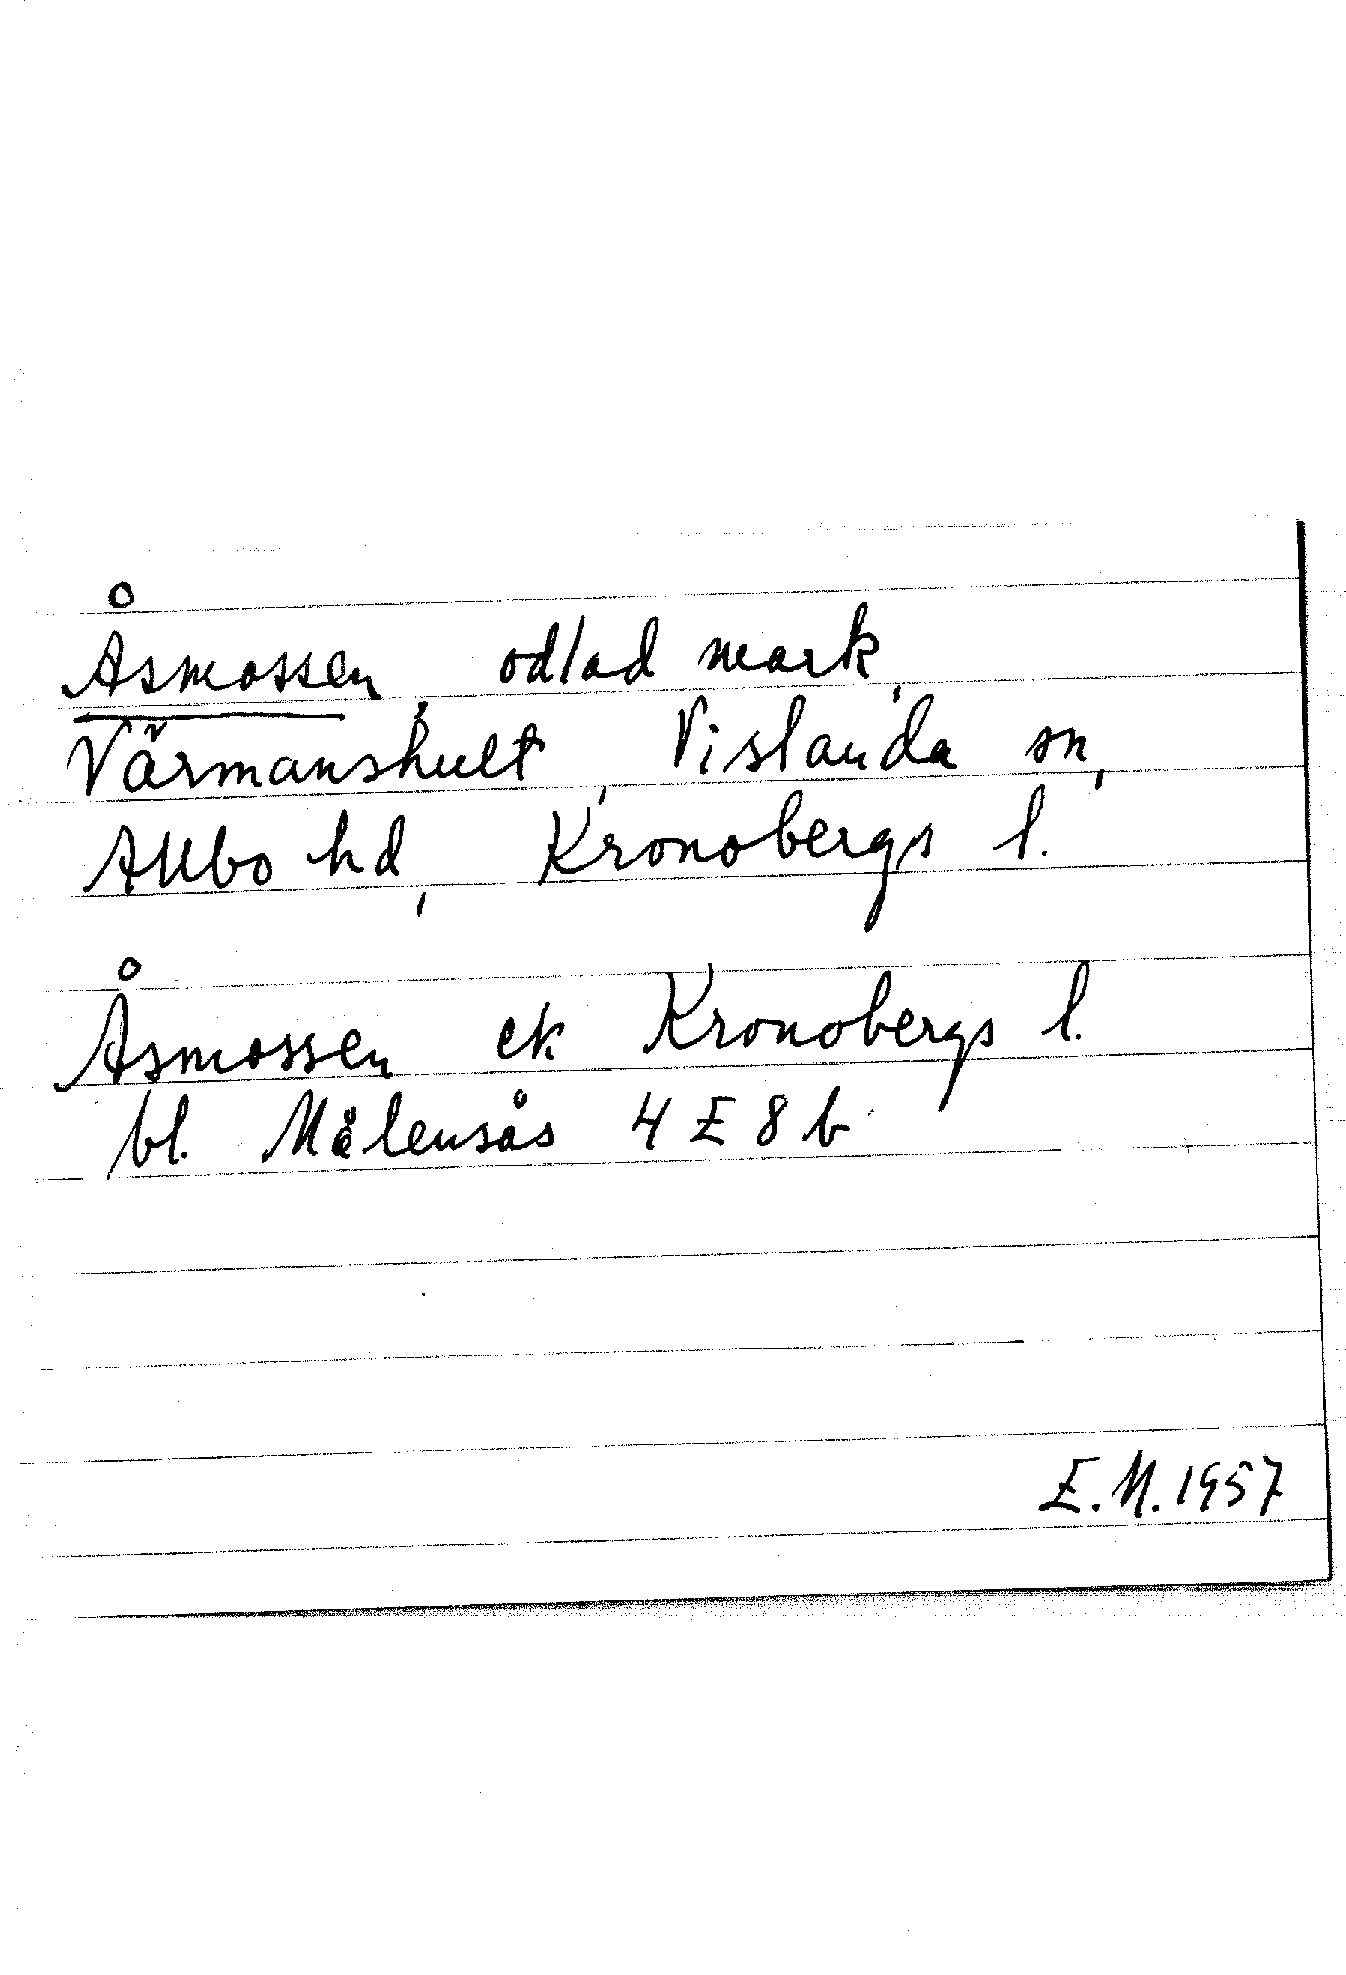 Åsmossen, odlad mark,
Värmanshult, Vislanda sn,
Allbo hd, Kronobergs l.
Åsmossen ek Kronobergs l.
bl. Målensås 4 E 8 b
E.M. 1957